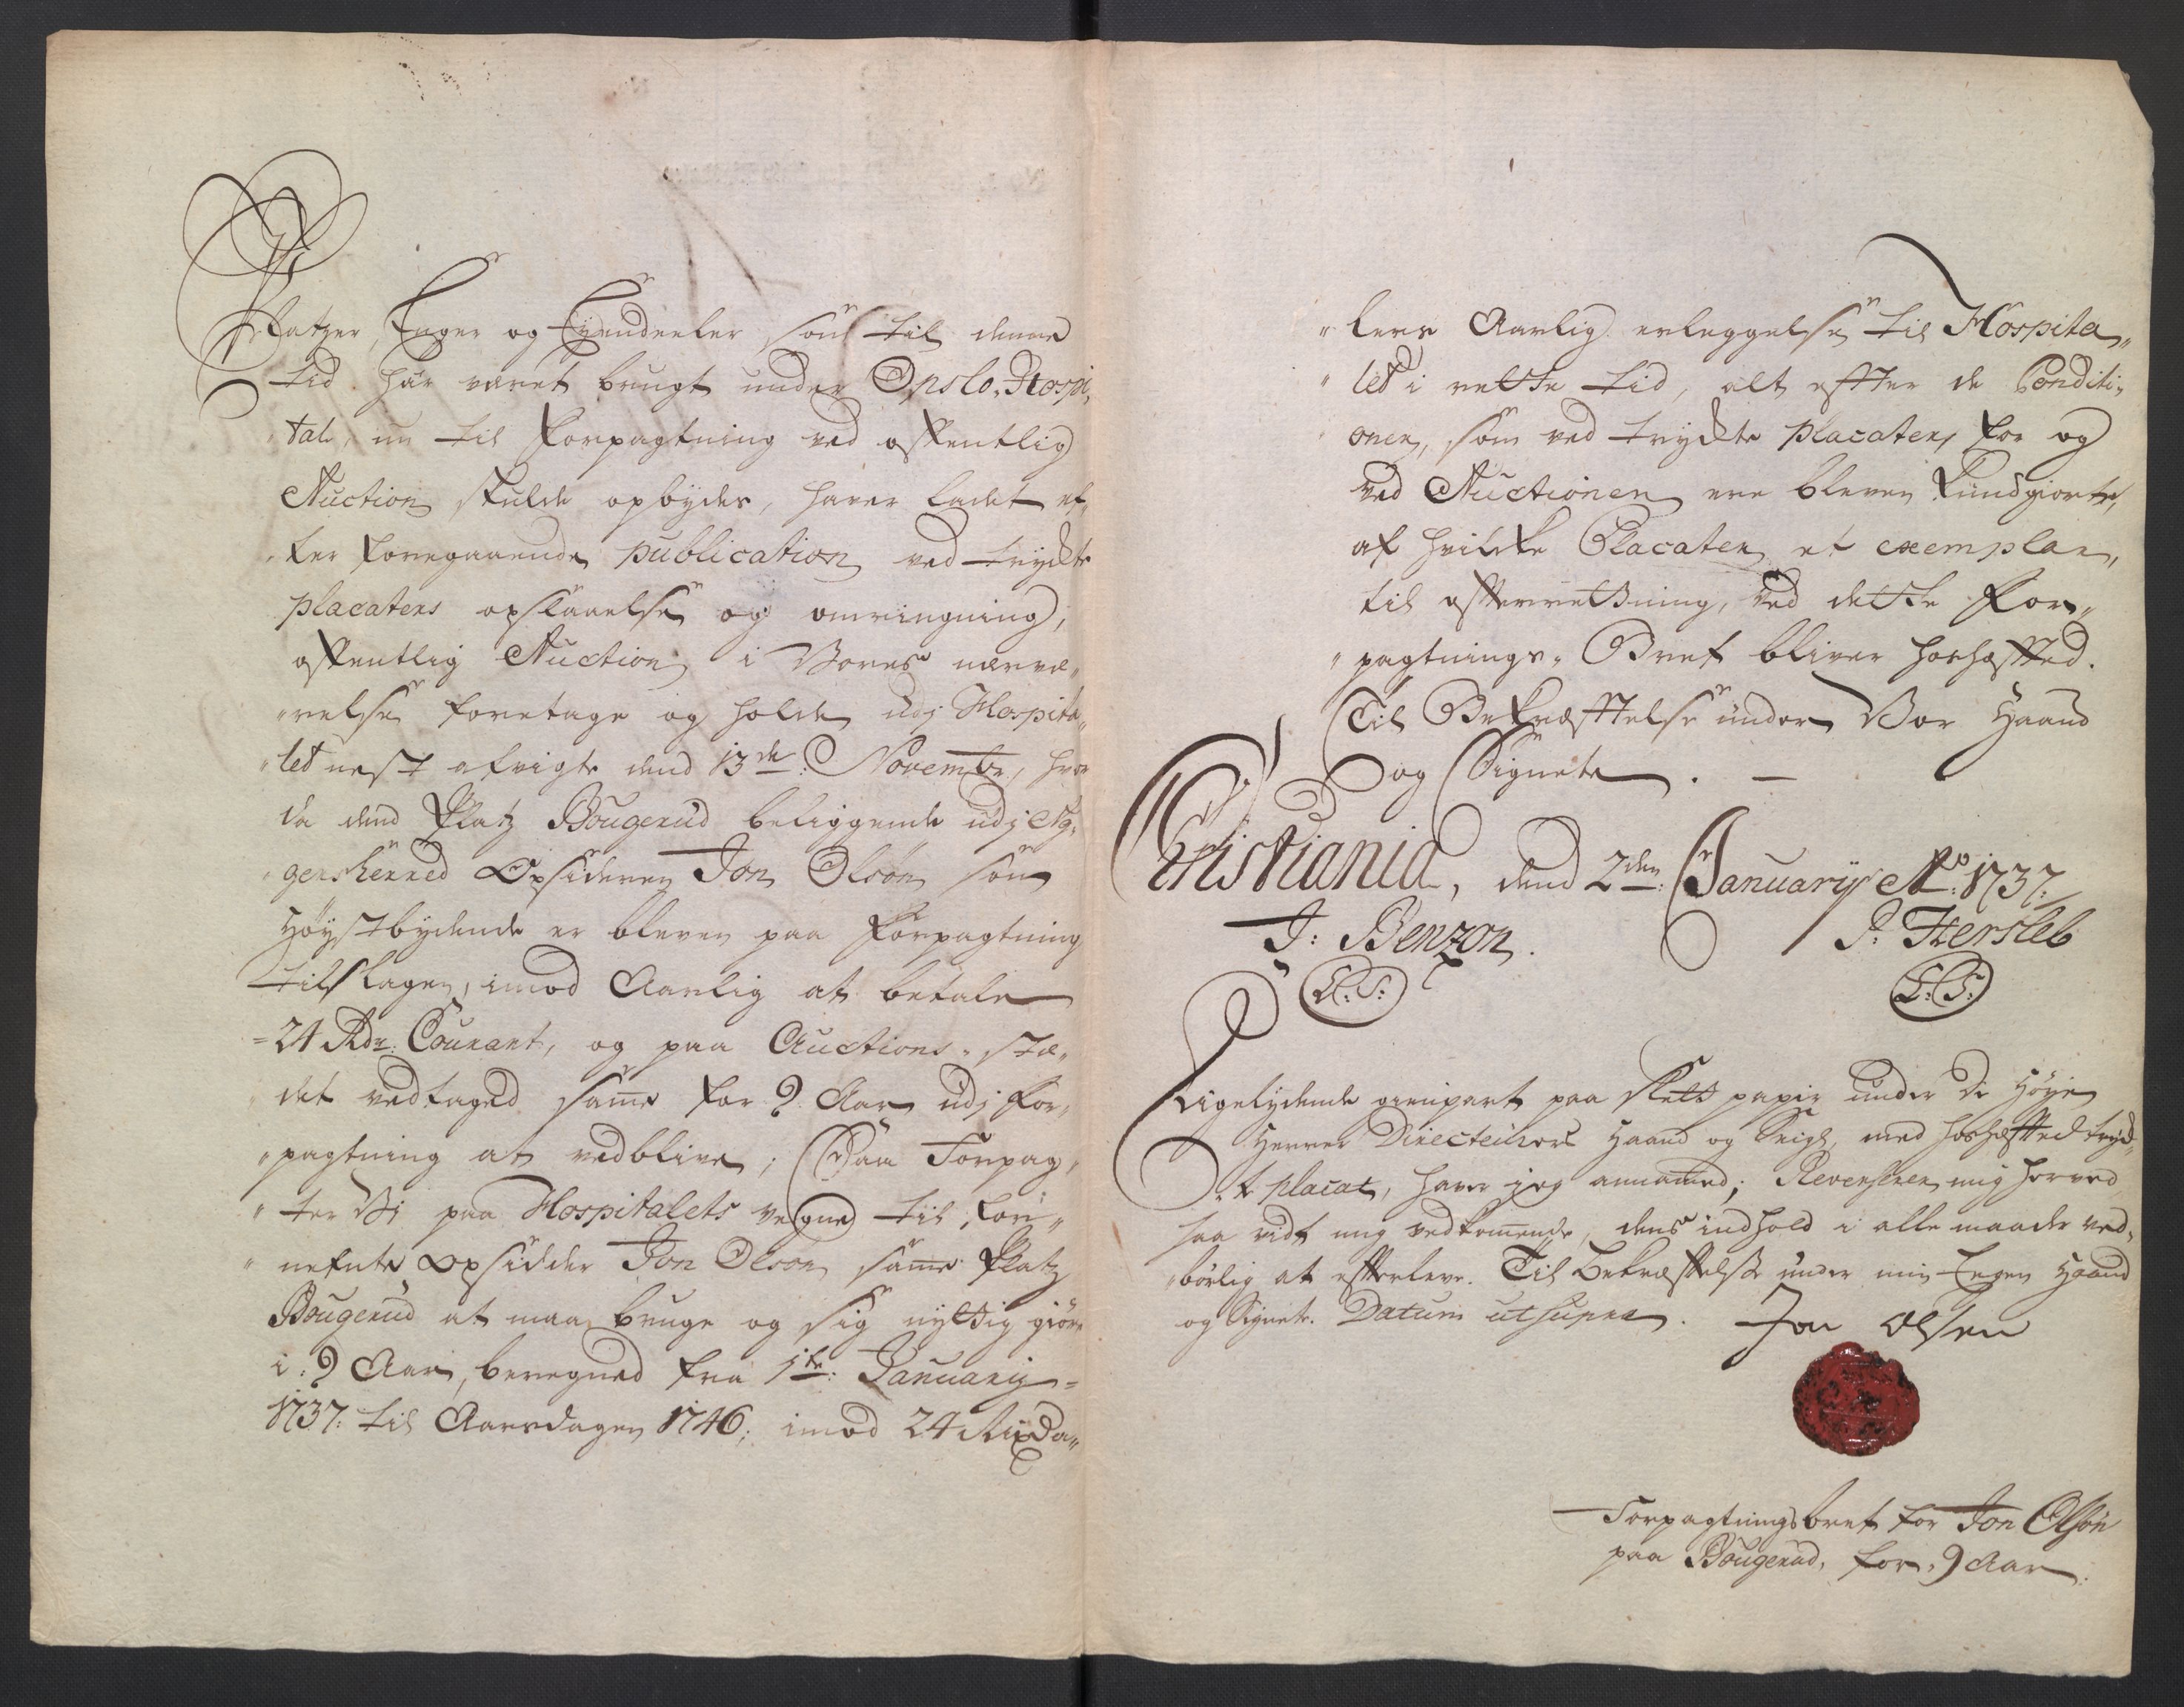 Platzer, Enger og Eyendeeler som til denne
tid har været brugt under Opslo Hospi„
tal, nu til Forpagtning ved offentlig
Auction skulde opbydes, haver ladet ef„
„ter foregaaende publication ved trydte
placaters opslaaelse og omringning,
offentlig Auction i Vores nærvæ„
„relse foretage og holde udj Hospita„
„let nest afvigte dend 13de: Novembr, hvor
da dend Platz Bougerud beliggende udj Ag„
„gersherred Opsideren Jon Olsøn som
Høystbydende er bleven paa Forpagtning
tilslagen, imod Aarlig at betale
24 Rdr: Courant, og paa Auctions„stæ„
det vedtaged samme for 9 Aar udj For„
„pagtning at vedblive; Saa Forpag„
„ter Vi paa Hospitalets vegne til for„
„nefnte Opsidder Jon Olsøn samme Platz
Bougerud at maa bruge og sig nyttig giøre
i: 9 Aar, beregned fra 1te: January
1737: til Aarsdagen 1746; imod 24 Rixda„
„lers Aarlig erleggelse til Hospita„
„let i rette tid, alt effter de Conditi„
„oner, som ved trydte placater, for og
ved Auctionen ere bleven kundgiorte,
af hvilcke Placater et exemplar,
til effterretning, ved dette For„
„pagtnings„Bref bliver hoshæfted.
Til Bekræfftelse under Vor Haand
og Signete.
Christiania, dend 2den: January Ao: 1737:
J: Benzon. P: Hersleb
L:S: L:S:
Ligelydende gienpart paa slett papir under De Høye
Herrer Directeurers Haand og Seigl, med hoshæfted tryd„
„t placat, haver jeg annammed; Reverserer mig herved
saa vidt mig vedkommende, dens indhold i alle maader ved„
„børlig at effterleve. Til Bekræfftelse under min Egen Haand
og Signete. Datum ut supra. Jon Olsen
Forpagtningsbref for Jon Olsøn
paa Bougerud, for 9 Aar.